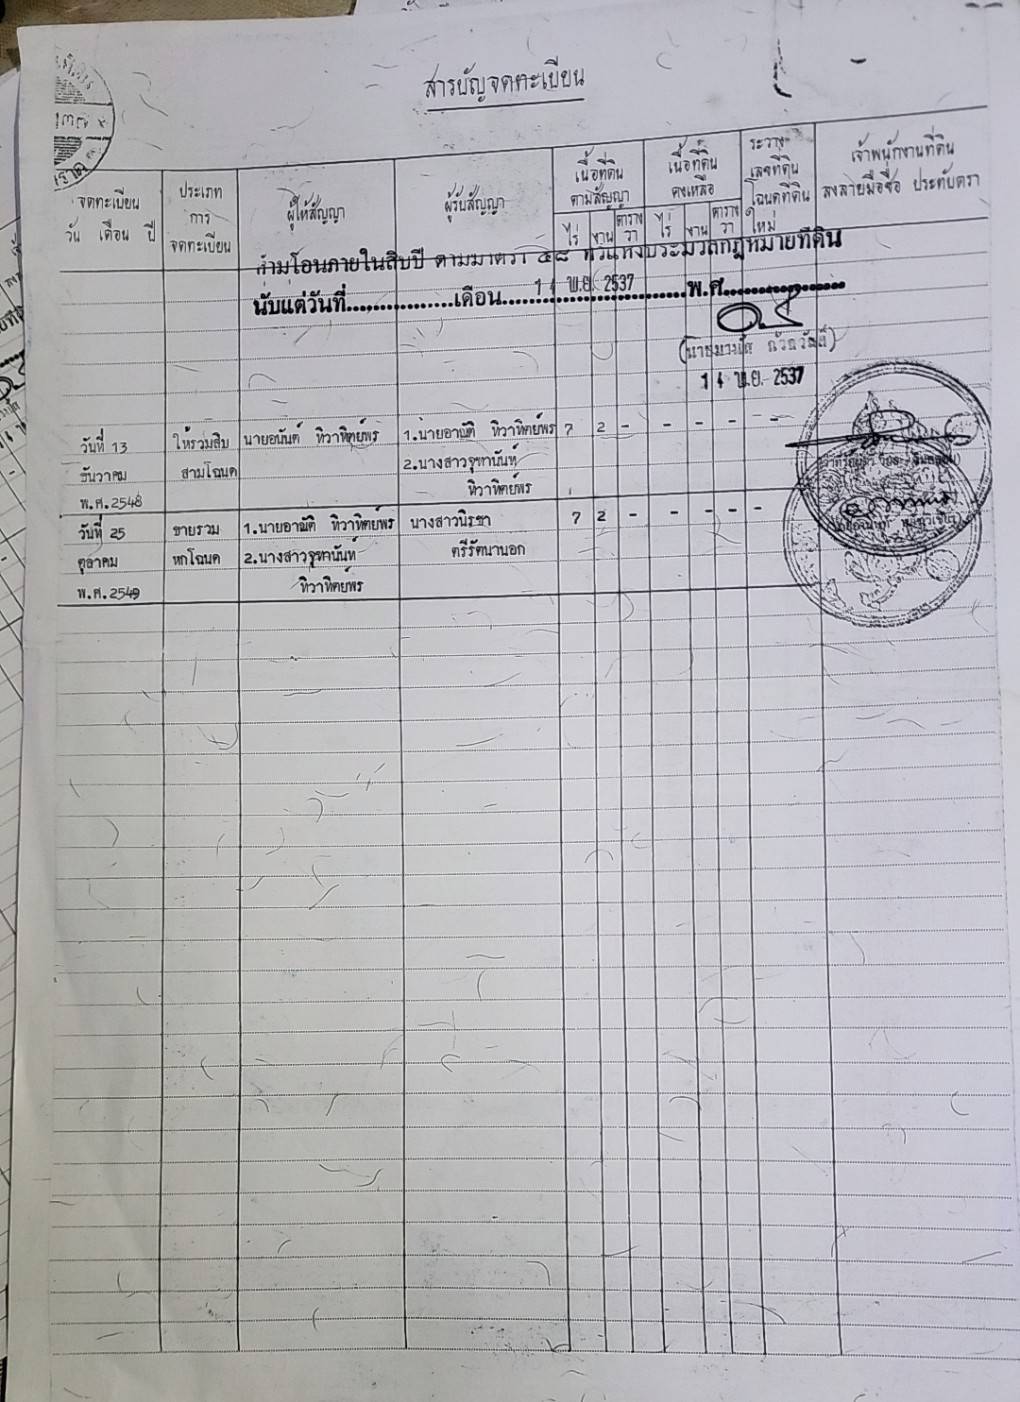 สารบัญจดทะเบียน
จดทะเบียน
วัน เดือน ปี
ประเภท
การ
จดทะเบียน
ผู้ให้สัญญา
ผู้รับสัญญา
เนื้อที่ดิน
ตามสัญญา
ไร่ งาน ตาราง
วา
เนื้อที่ดิน
คงเหลือ
ไร่ งาน ตาราง
วา
ระวาง
เลขที่ดิน
โฉนดที่ดิน
ใหม่
เจ้าพนักงานที่ดิน
ลงลายมือชื่อ ประทับตรา
ห้ามโอนภายในสิบปี ตามมาตรา ๕๘ ทวิแห่งประมวลกฎหมายที่ดิน
นับแต่วันที่..................เดือน..............................พ.ศ...................
14 พ.ย. 2537
14 พ.ย. 2537
วันที่ 13
ธันวาคม
พ.ศ.2548
ให้รวมสิบ
สามโฉนด
นายอนันต์ ทิวาทิตย์พร
1.นายอาณัติ ทิวาทิตย์พร
2.นางสาวจุฑานันท์
ทิวาทิตย์พร
7 2 - - - - -
วันที่ 25
ตุลาคม
พ.ศ.2549
ขายรวม
หกโฉนด
1.นายอาณัติ ทิวาทิตย์พร
2.นางสาวจุฑานันท์
ทิวาทิตย์พร
นางสาวนิรชา
ตรีรัตนานอก
7 2 - - - - -